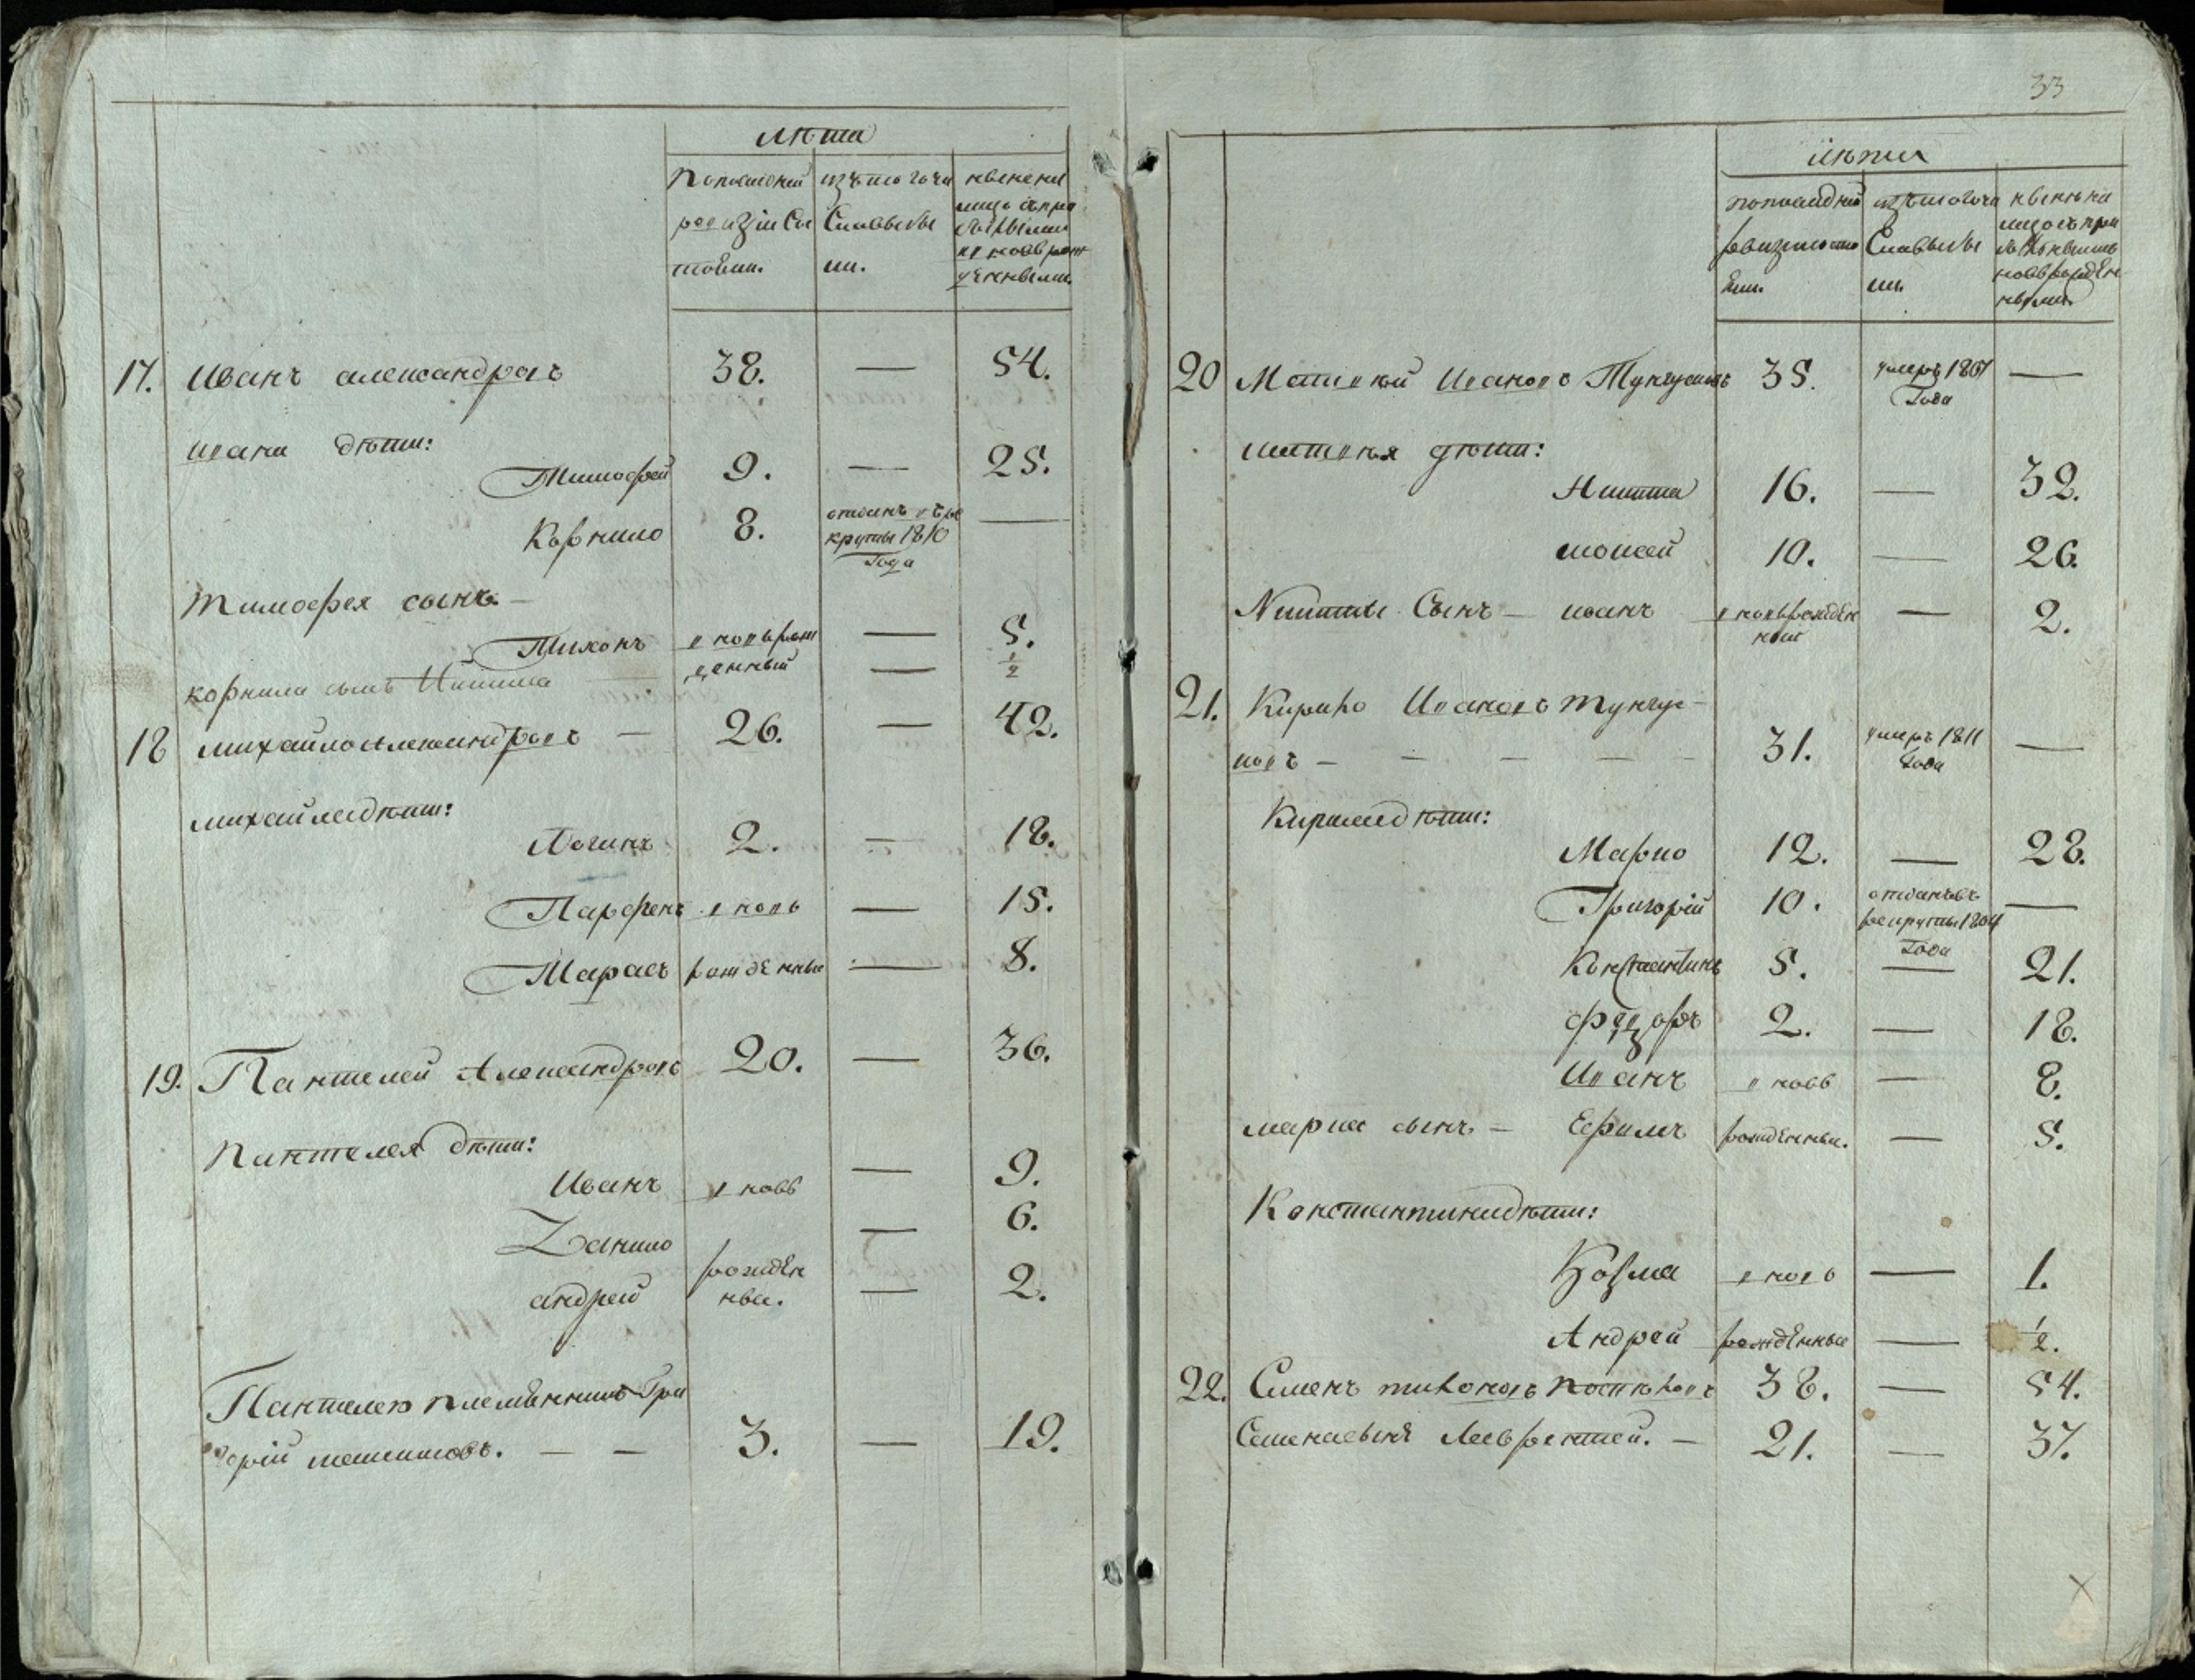 лѣта
По послѣдней
ревизіи со
стояли.
изъ того числа
выбы
ли.
нынѣ на
лицо съ при
былыми
и новорож
денными.
17. Иванъ александровъ 38. — 54.
ивана дѣти:
Тимофей 9. — 25.
Корнило 8. отданъ въ ре
круты 1810
Года —
Тимофея сынъ —
Тихонъ вновьрож
денный — 5.
корнила сынъ Никита — 1/2
18 михайло александровъ — 26. — 42.
михайла дѣти:
Логинъ 2. — 18.
Парфенъ вновь — 15.
Тарасъ рожденные — 8.
19. Пантелей Александровъ 20. — 36.
Пантелея дѣти:
Иванъ вновь — 9.
Данило — 6.
андрей рожден
ные. — 2.
Пантелея племянникъ Гри
горій — — 3. — 19.
33
лѣта
по последней
ревизіи состо
яли.
изъ того числа
выбы
ли.
нынѣ на
лицо съ при
былыми
новорожден
ными
20 Матвѣй Ивановъ Тунгусовъ 35. умеръ 1807
Года —
матвѣя дѣти:
Никита 16. — 32.
моисей 10. — 26.
Никиты Сынъ — иванъ вновьрожден
ный — 2.
21. Кирило Ивановъ Тунгус-
новъ — — — — — 31. умеръ 1811
Года —
Кирила дѣти:
Марко 12. — 28.
Григорій 10. отданъ въ
рекруты 1804
Года —
Константинъ 5. — 21.
Федоръ 2. — 18.
Иванъ вновь — 8.
марка сынъ — Ефимъ рожденные. — 5.
Константина дѣти:
Козма вновь — 1.
Андрей рожденные — 1/2.
22. Семенъ тихоновъ 38. — 54.
Семена сынъ Лаврентей. — 21. — 37.